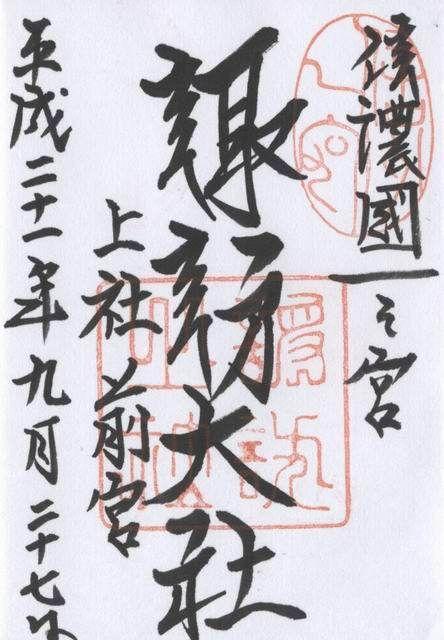 信濃國一之宮
諏訪大社
上社前宮
平成二十一年九月二十七日